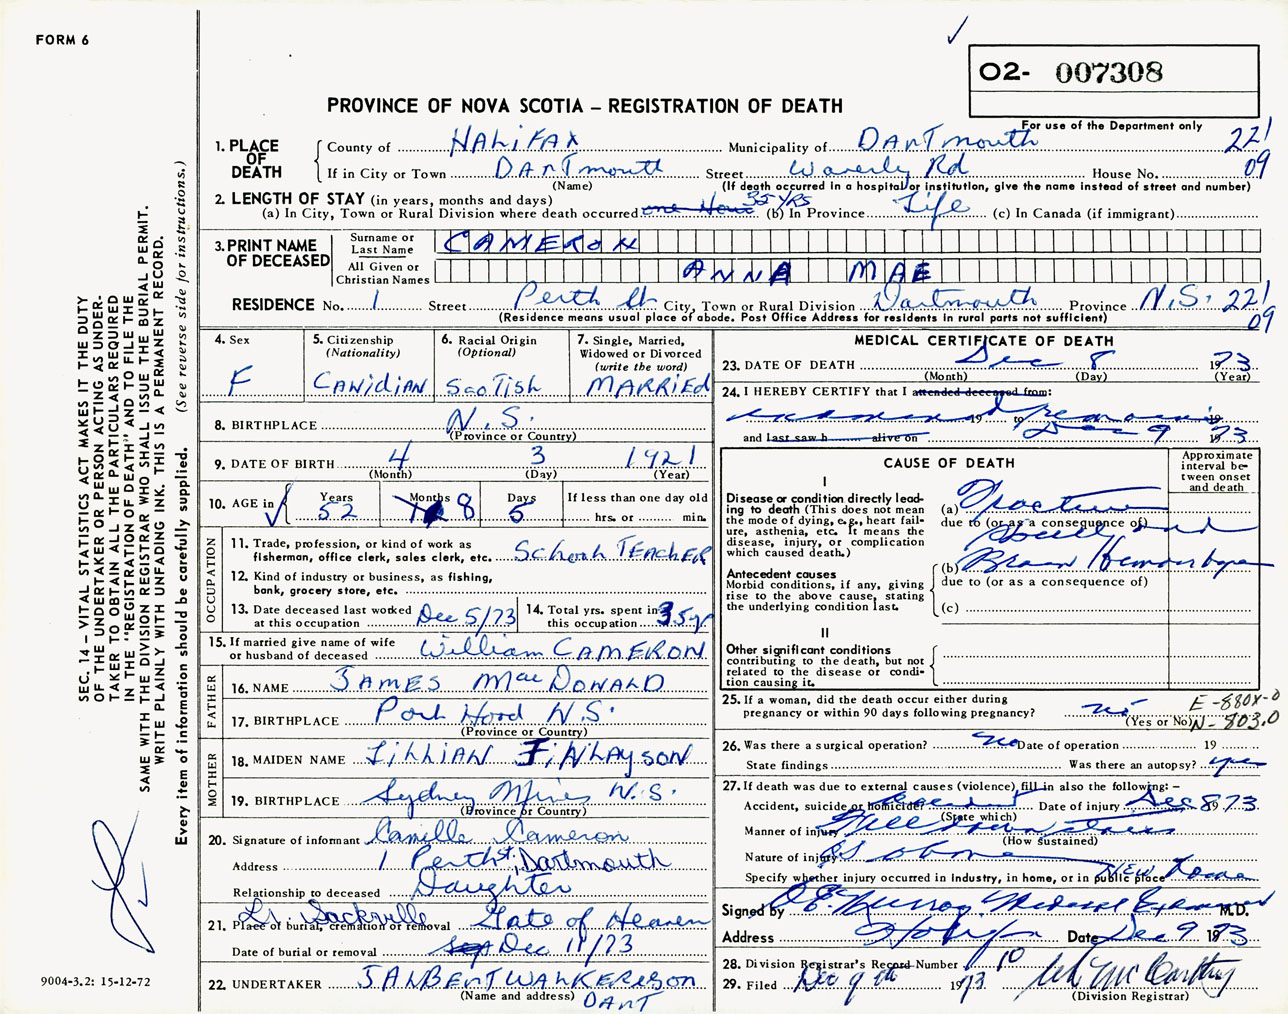 FORM 6
O2- 007308
For use of the Department only
PROVINCE OF NOVA SCOTIA – REGISTRATION OF DEATH
1. PLACE OF DEATH
County of HALIFAX Municipality of DARTMOUTH 221
If in City or Town DARTMOUTH Street Waverly Rd House No. 09
(Name) (If death occurred in a hospital or institution, give the name instead of street and number)
2. LENGTH OF STAY (in years, months and days)
(a) In City, Town or Rural Division where death occurred one Hour 35 YRS (b) In Province Life (c) In Canada (if immigrant)
3. PRINT NAME OF DECEASED
Surname or Last Name CAMERON
All Given or Christian Names ANNA MAE
RESIDENCE No. 1 Street Perth St City, Town or Rural Division Dartmouth Province N.S. 221
09
(Residence means usual place of abode. Post Office Address for residents in rural parts not sufficient)
4. Sex
F
5. Citizenship
(Nationality)
CANIDIAN
6. Racial Origin
(Optional)
SCOTISH
7. Single, Married,
Widowed or Divorced
(write the word)
MARRIED
8. BIRTHPLACE N.S.
(Province or Country)
9. DATE OF BIRTH 4 3 1921
(Month) (Day) (Year)
10. AGE in Years 52 Months 8 Days 5 If less than one day old
hrs. or min.
OCCUPATION
11. Trade, profession, or kind of work as
fisherman, office clerk, sales clerk, etc. School TEACHER
12. Kind of industry or business, as fishing,
bank, grocery store, etc.
13. Date deceased last worked
at this occupation Dec 5/73
14. Total yrs. spent in
this occupation 35 yr
15. If married give name of wife
or husband of deceased William CAMERON
FATHER
16. NAME JAMES MacDONALD
17. BIRTHPLACE Port Hood N.S.
(Province or Country)
MOTHER
18. MAIDEN NAME LILLIAN FINLAYSON
19. BIRTHPLACE Sydney Mines N.S.
(Province or Country)
20. Signature of informant Camille Cameron
Address 1 Perth St, Dartmouth
Relationship to deceased Daughter
21. Place of burial, cremation or removal Lr. Sackville Gate of Heaven
Date of burial or removal Dec 11/73
22. UNDERTAKER
(Name and address) DART
MEDICAL CERTIFICATE OF DEATH
23. DATE OF DEATH Dec 8 1973
(Month) (Day) (Year)
24. I HEREBY CERTIFY that I attended deceased from:
examined 19 to remains 19
and last saw h alive on Dec 9 1973
CAUSE OF DEATH
Approximate interval between onset and death
I
Disease or condition directly leading to death (This does not mean the mode of dying, e.g., heart failure, asthenia, etc. It means the disease, injury, or complication which caused death.)
(a) Fracture
due to (or as a consequence of)
Skull and
Antecedent causes
Morbid conditions, if any, giving rise to the above cause, stating the underlying condition last.
(b) Brain Hemorrhage
due to (or as a consequence of)
(c)
II
Other significant conditions
contributing to the death, but not related to the disease or condition causing it.
25. If a woman, did the death occur either during
pregnancy or within 90 days following pregnancy? no
(Yes or No)
E-880X-0
N-803.0
26. Was there a surgical operation? no Date of operation 19
State findings Was there an autopsy? yes
27. If death was due to external causes (violence) fill in also the following: –
Accident, suicide or homicide accident Date of injury Dec 8 1973
(State which)
Manner of injury Fell down stairs
(How sustained)
Nature of injury as above
Specify whether injury occurred in industry, in home, or in public place NEW home
Signed by Murray Medical Examiner M.D.
Address Halifax Date Dec 9 1973
28. Division Registrar's Record Number 10
29. Filed Dec 9th 1973 McCarthy
(Division Registrar)
SEC. 14 – VITAL STATISTICS ACT MAKES IT THE DUTY
OF THE UNDERTAKER OR PERSON ACTING AS UNDER-
TAKER TO OBTAIN ALL THE PARTICULARS REQUIRED
IN THE "REGISTRATION OF DEATH" AND TO FILE THE
SAME WITH THE DIVISION REGISTRAR WHO SHALL ISSUE THE BURIAL PERMIT.
WRITE PLAINLY WITH UNFADING INK. THIS IS A PERMANENT RECORD.
Every item of information should be carefully supplied. (See reverse side for instructions.)
9004-3.2: 15-12-72